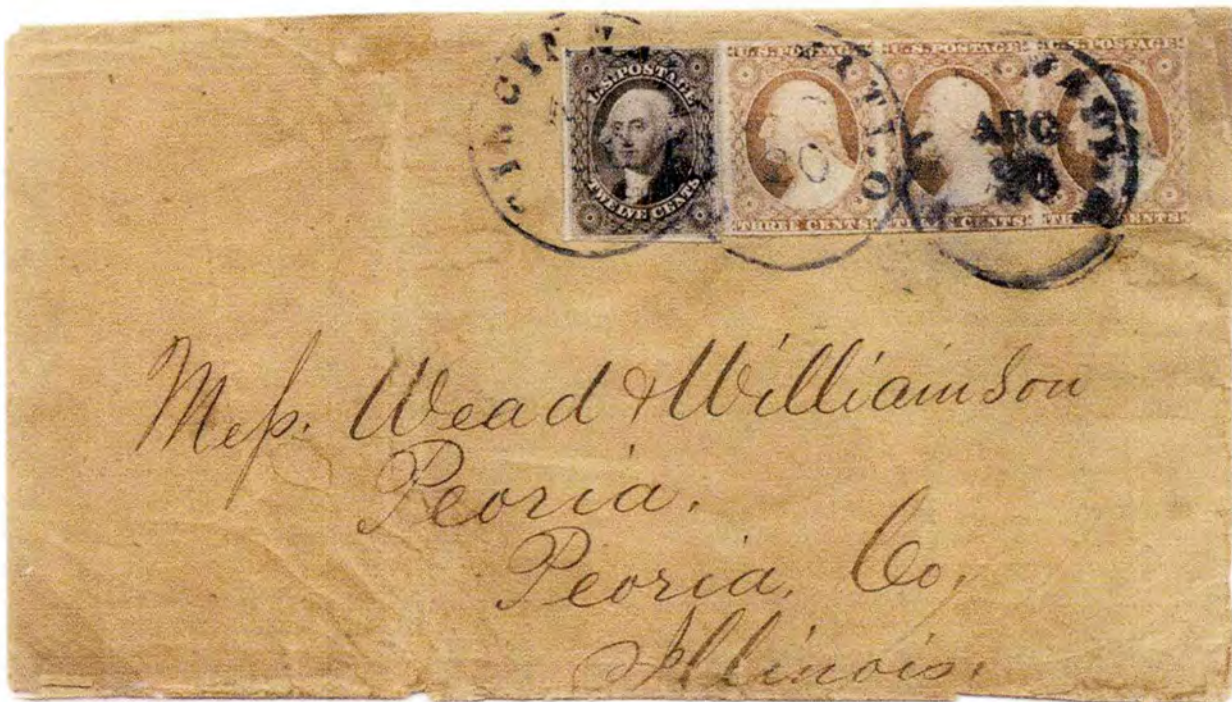 U.S. POSTAGE
TWELVE CENTS
U.S. POSTAGE
THREE CENTS
U.S. POSTAGE
THREE CENTS
U.S. POSTAGE
THREE CENTS
20
AUG
20
Mess. Wead & Williamson
Peoria.
Peoria, Co,
Illinois.